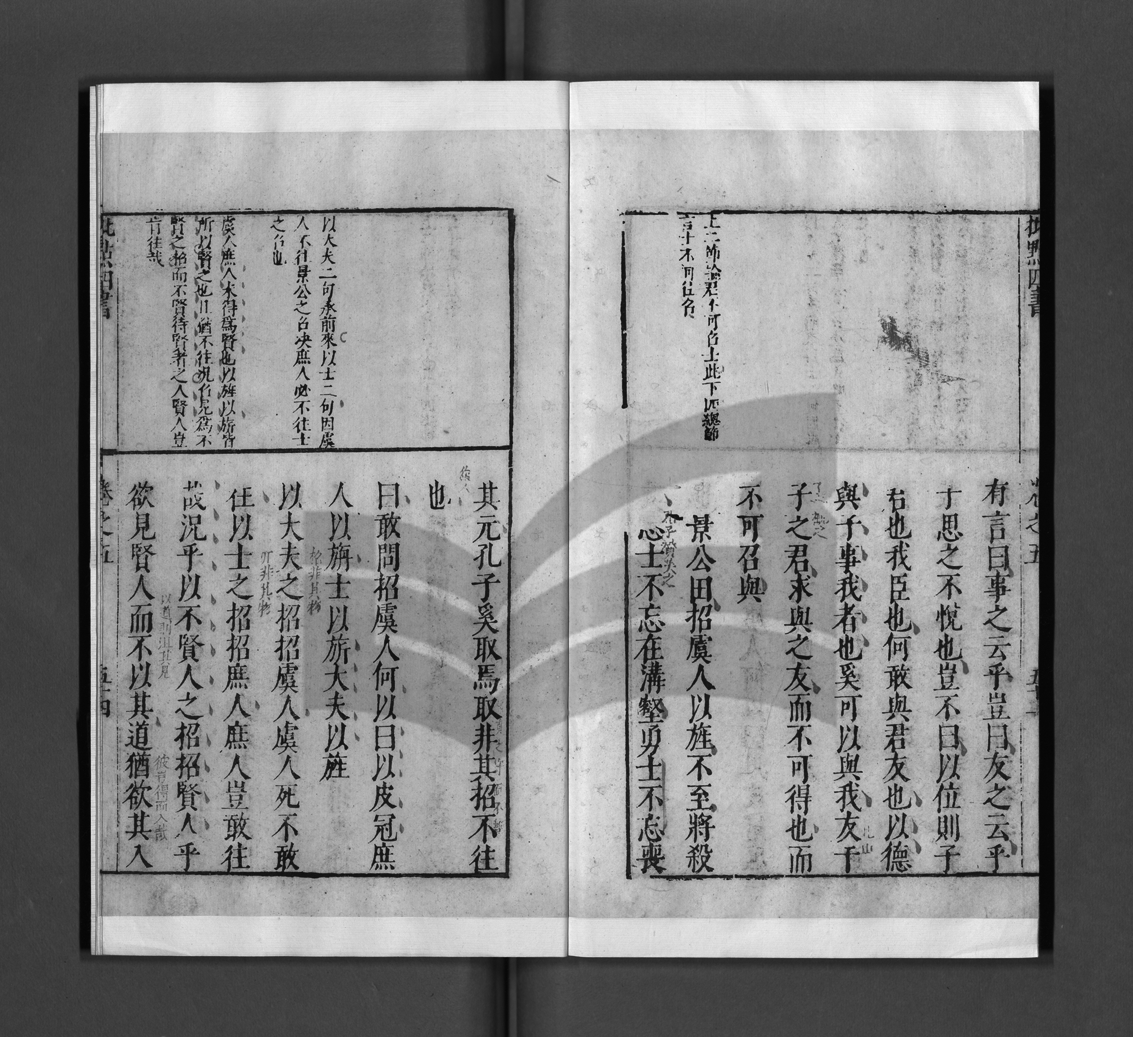 卷之五
有言曰事之云乎豈曰友之云乎
子思之不悅也豈不曰以位則子
君也我臣也何敢與君友也以德
與子事我者也奚可以與我友千
子之君求與之友而不可得也而
不可召與
景公田招虞人以旌不至將殺
志士不忘在溝壑勇士不忘喪
上二節論君不可召士此下四總節
言士不可往召
其元孔子奚取焉取非其招不往
也
曰敢問招虞人何以曰以皮冠庶
人以旃士以旂大夫以旌
以大夫之招招虞人虞人死不敢
往以士之招招庶人庶人豈敢往
哉況乎以不賢人之招招賢人乎
欲見賢人而不以其道猶欲其入
以大夫二句承前來以士二句因虞
人不往景公之召決庶人必不往士
之召也
虞人庶人未得爲賢也以旌以旂皆
所以賢之也且猶不往況召見爲不
賢之招而不賢待賢者之人賢人豈
肯往哉
批點四書
卷之五
五十四